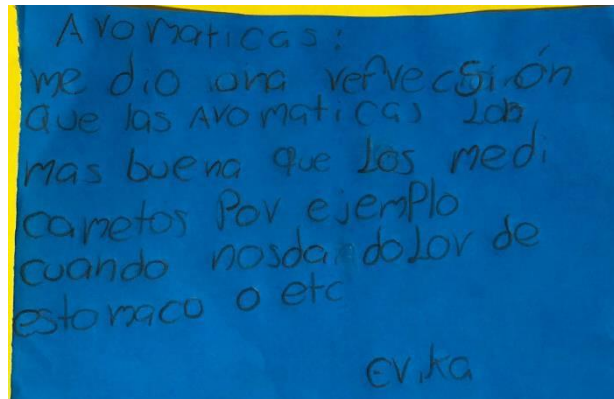 Aromaticas:
me dio una reflecsión
que las aromaticas son
mas buena que los medi
cametos Por ejemplo
cuando nosda dolor de
estomaco o etc
Erika